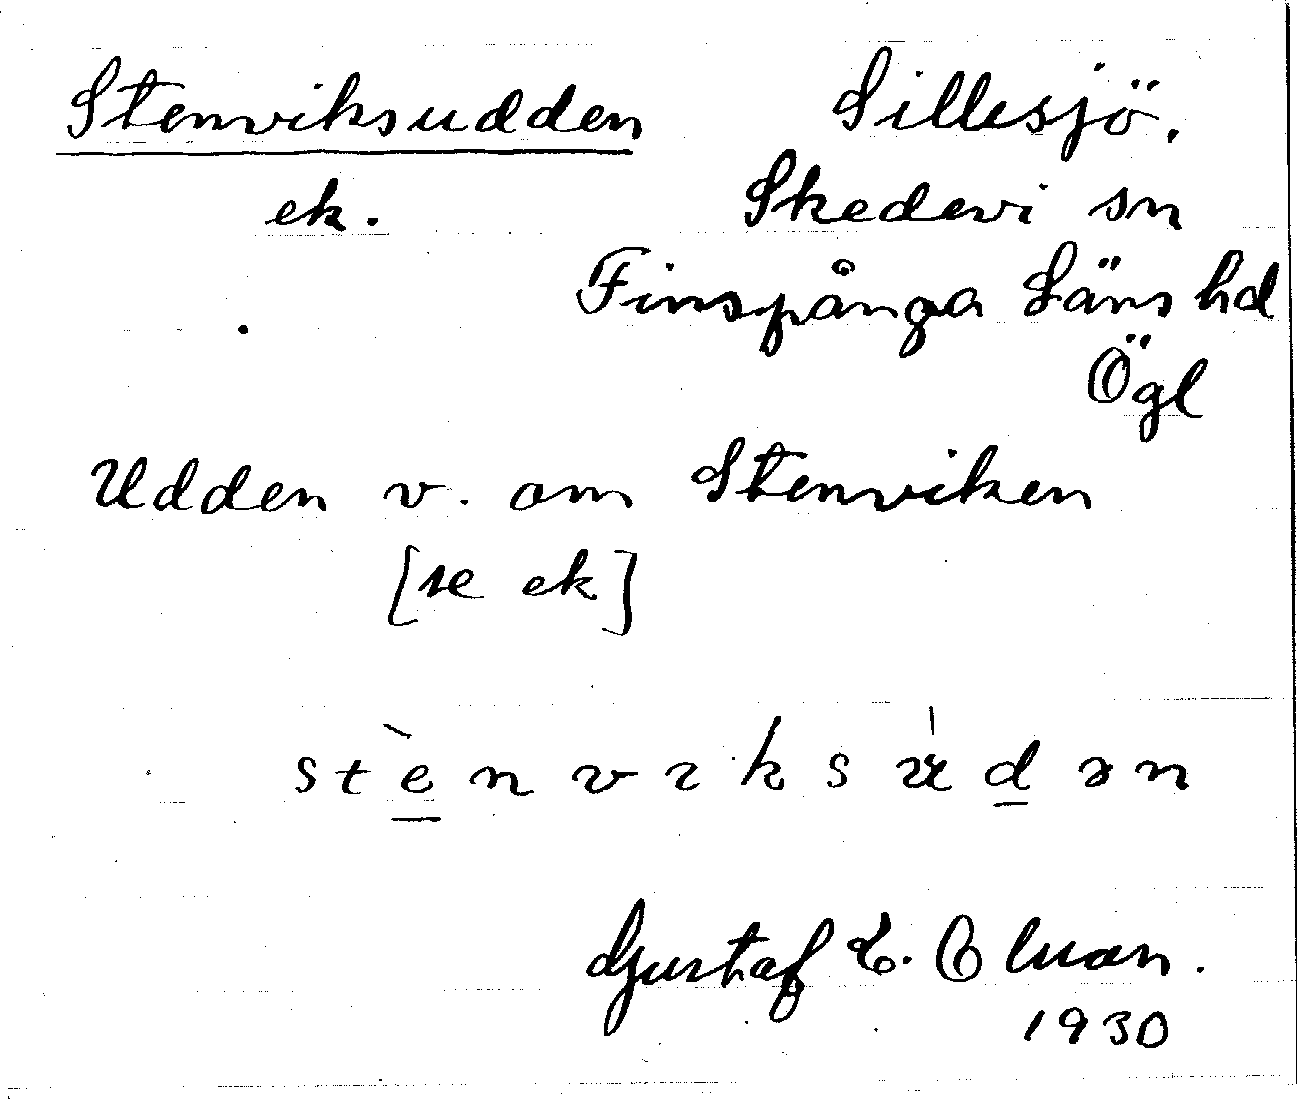 Stenviksudden Sillesjö.
ek. Skedevi sn
Finspånga Läns hd
Ögl
Udden v. om Stenviken
[se ek]
stènvɩksu̍dən
Gustaf E.
1930